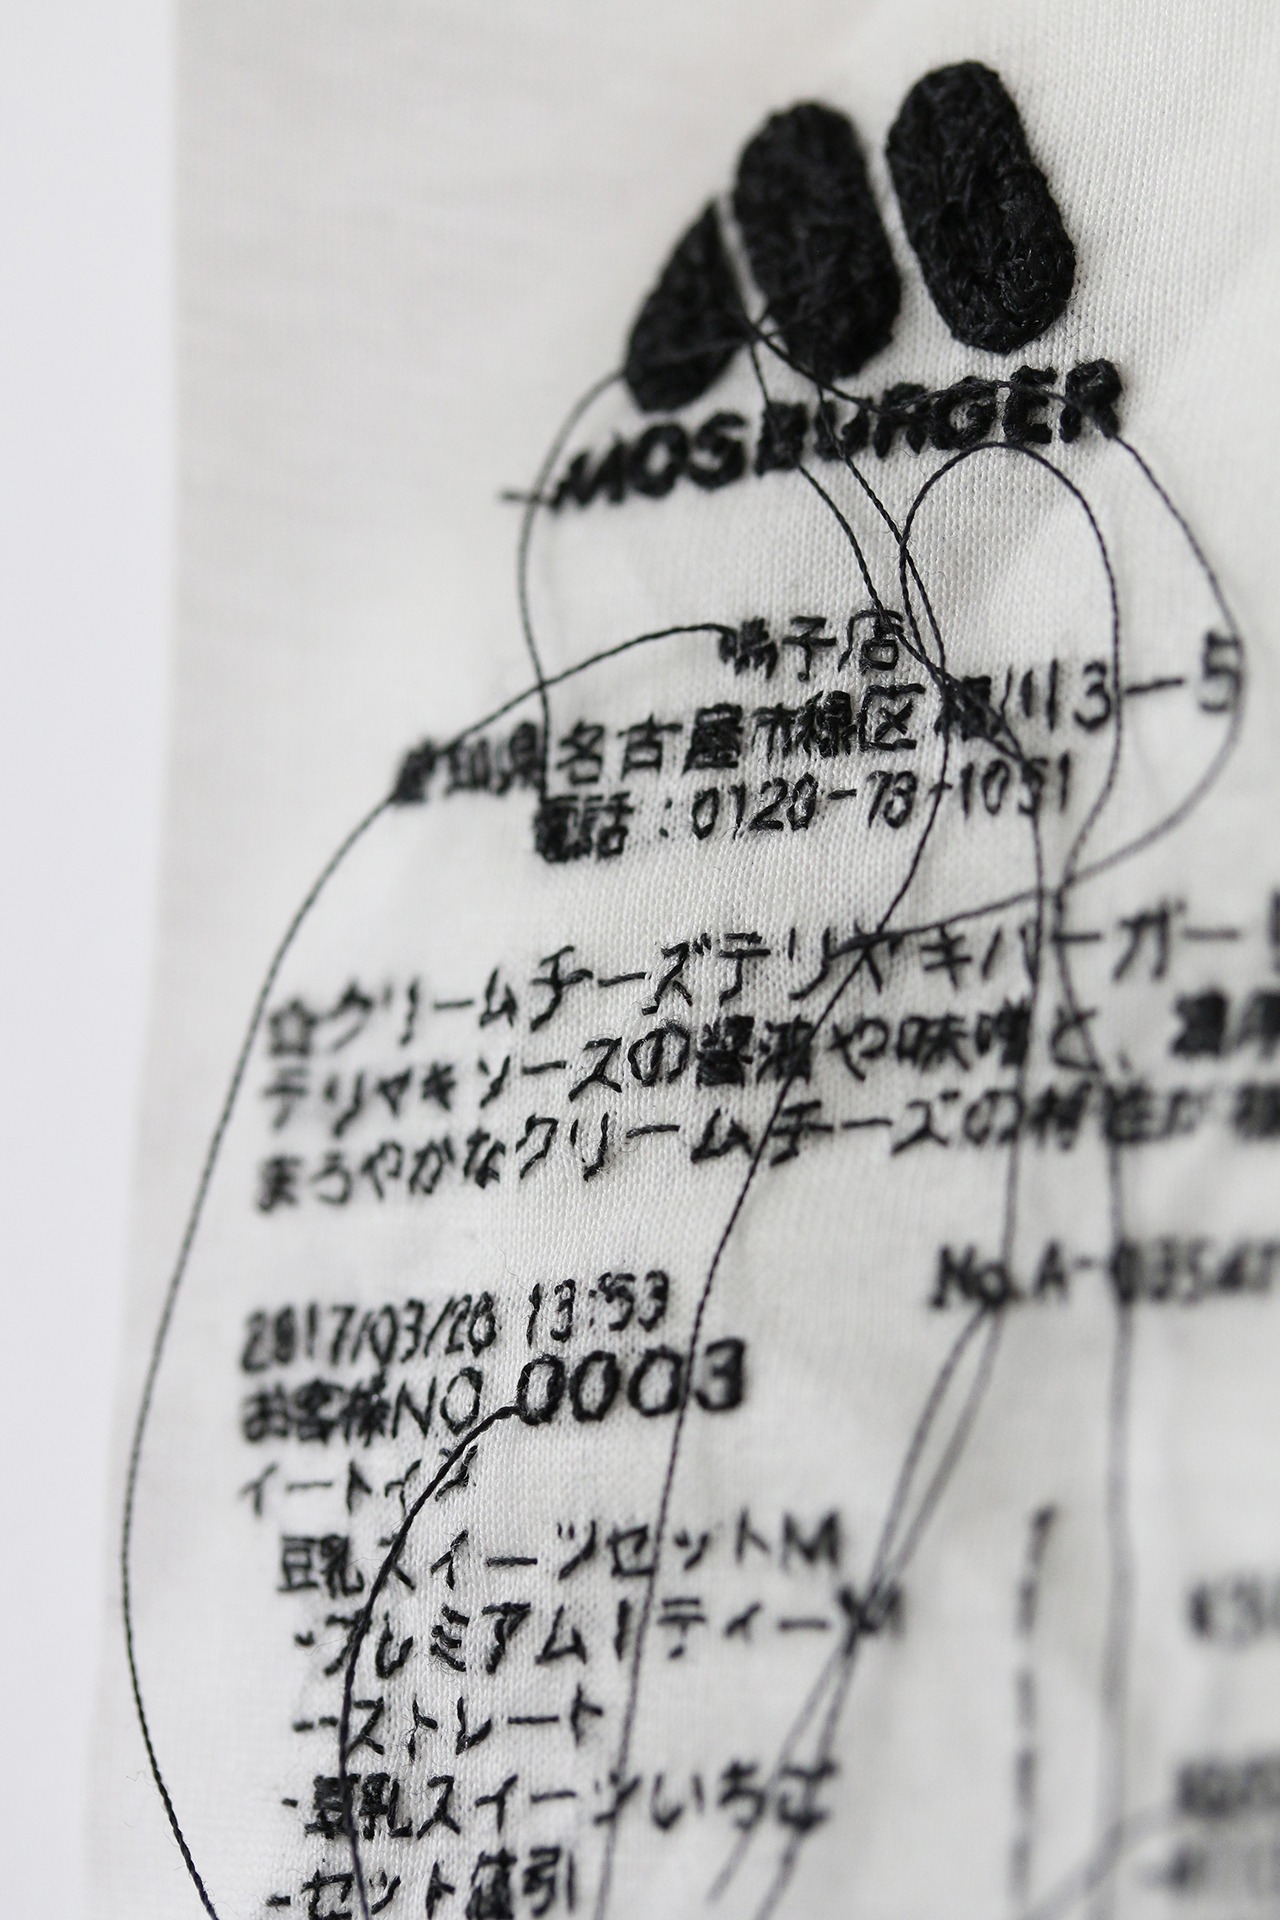 MOSBURGER
鳴子店
愛知県名古屋市緑区 113-5
電話:0120-78-1051
☆クリームチーズテリヤキバーガー
テリヤキソースの醤油や味噌と、濃厚
まろやかなクリームチーズの相性が
No.A-03547
2017/03/28 13:53
お客様NO 0003
イートイン
豆乳スイーツセットM
・プレミアムIティーM
・・ストレート
・豆乳スイーツいちご
・セット値引